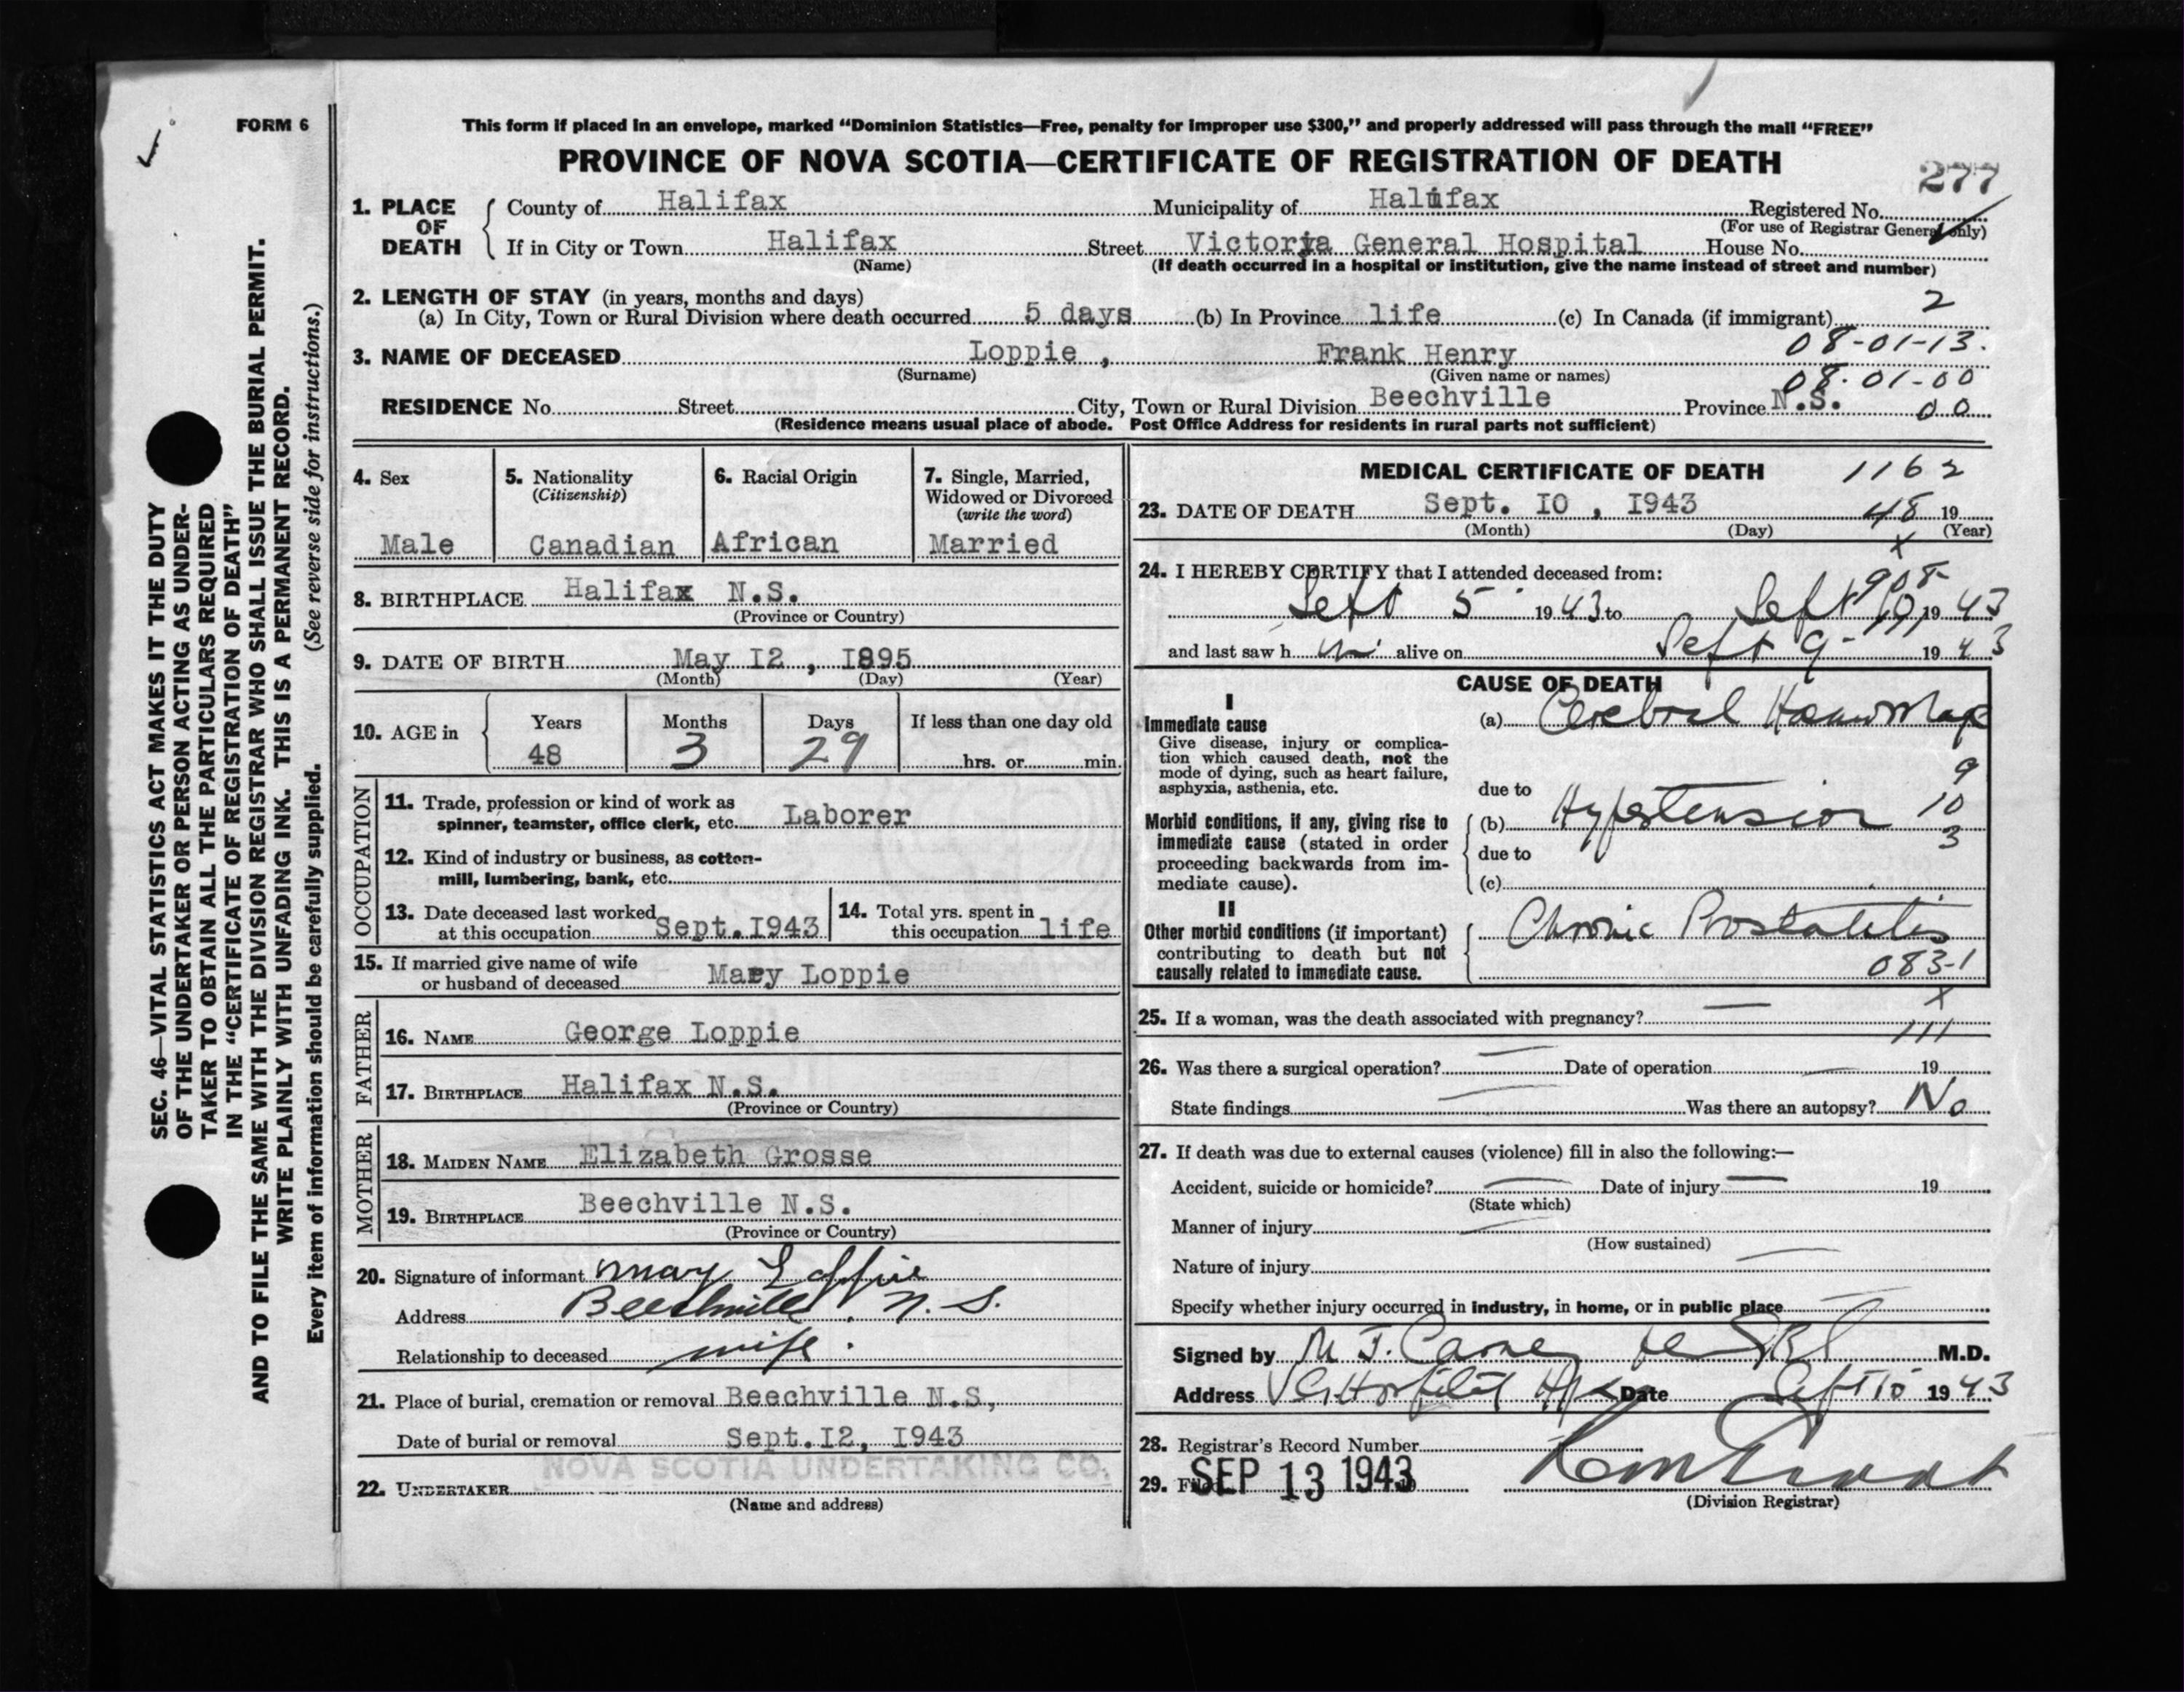 FORM 6
This form if placed in an envelope, marked “Dominion Statistics—Free, penalty for improper use $300,” and properly addressed will pass through the mail “FREE”
PROVINCE OF NOVA SCOTIA—CERTIFICATE OF REGISTRATION OF DEATH
277
1. PLACE OF DEATH
County of Halifax Municipality of Halifax Registered No.
(For use of Registrar General only)
If in City or Town Halifax Street Victoria General Hospital House No.
(Name) (If death occurred in a hospital or institution, give the name instead of street and number)
2. LENGTH OF STAY (in years, months and days) 2
(a) In City, Town or Rural Division where death occurred 5 days (b) In Province life (c) In Canada (if immigrant)
08-01-13.
3. NAME OF DECEASED Loppie, Frank Henry
(Surname) (Given name or names) 08-01-00
RESIDENCE No. Street City, Town or Rural Division Beechville Province N.S. 00
(Residence means usual place of abode. Post Office Address for residents in rural parts not sufficient)
4. Sex
Male
5. Nationality
(Citizenship)
Canadian
6. Racial Origin
African
7. Single, Married,
Widowed or Divorced
(write the word)
Married
8. BIRTHPLACE Halifax N.S.
(Province or Country)
9. DATE OF BIRTH May I2, I895
(Month) (Day) (Year)
10. AGE in Years Months Days If less than one day old
48 3 29 hrs. or min.
OCCUPATION
11. Trade, profession or kind of work as
spinner, teamster, office clerk, etc. Laborer
12. Kind of industry or business, as cotton-
mill, lumbering, bank, etc.
13. Date deceased last worked
at this occupation Sept.I943
14. Total yrs. spent in
this occupation life
15. If married give name of wife
or husband of deceased Mary Loppie
FATHER
16. NAME George Loppie
17. BIRTHPLACE Halifax N.S.
(Province or Country)
MOTHER
18. MAIDEN NAME Elizabeth Grosse
19. BIRTHPLACE Beechville N.S.
(Province or Country)
20. Signature of informant Mary Loppie
Address Beechville, N.S.
Relationship to deceased wife.
21. Place of burial, cremation or removal Beechville N.S,
Date of burial or removal Sept.I2, I943
22. UNDERTAKER NOVA SCOTIA UNDERTAKING CO.
(Name and address)
MEDICAL CERTIFICATE OF DEATH 1162
23. DATE OF DEATH Sept. IO, I943 48 19
(Month) (Day) (Year)
x
24. I HEREBY CERTIFY that I attended deceased from:
908
Sept 5 1943 to Sept 10, 1943
and last saw h im alive on Sept 9 1943
CAUSE OF DEATH
I
Immediate cause
Give disease, injury or complica-
tion which caused death, not the
mode of dying, such as heart failure,
asphyxia, asthenia, etc.
(a) Cerebral Haemorrhage
9
due to
Morbid conditions, if any, giving rise to
immediate cause (stated in order
proceeding backwards from im-
mediate cause).
(b) Hypertension 10
3
due to
(c)
II
Other morbid conditions (if important)
contributing to death but not
causally related to immediate cause.
Chronic Prostatitis
083-1
x
25. If a woman, was the death associated with pregnancy? —
111
26. Was there a surgical operation? — Date of operation — 19
State findings — Was there an autopsy? No
27. If death was due to external causes (violence) fill in also the following:—
Accident, suicide or homicide? — Date of injury — 19
(State which)
Manner of injury —
(How sustained)
Nature of injury —
Specify whether injury occurred in industry, in home, or in public place —
Signed by M. J. Carney M.D.
Address V G Hospital Hfx Date Sept 10 1943
28. Registrar's Record Number
29. Filed SEP 13 1943
(Division Registrar)
SEC. 46—VITAL STATISTICS ACT MAKES IT THE DUTY
OF THE UNDERTAKER OR PERSON ACTING AS UNDER-
TAKER TO OBTAIN ALL THE PARTICULARS REQUIRED
IN THE “CERTIFICATE OF REGISTRATION OF DEATH”
AND TO FILE THE SAME WITH THE DIVISION REGISTRAR WHO SHALL ISSUE THE BURIAL PERMIT.
WRITE PLAINLY WITH UNFADING INK. THIS IS A PERMANENT RECORD.
Every item of information should be carefully supplied. (See reverse side for instructions.)